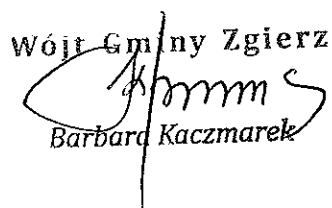 Wójt Gminy Zgierz
Barbara Kaczmarek